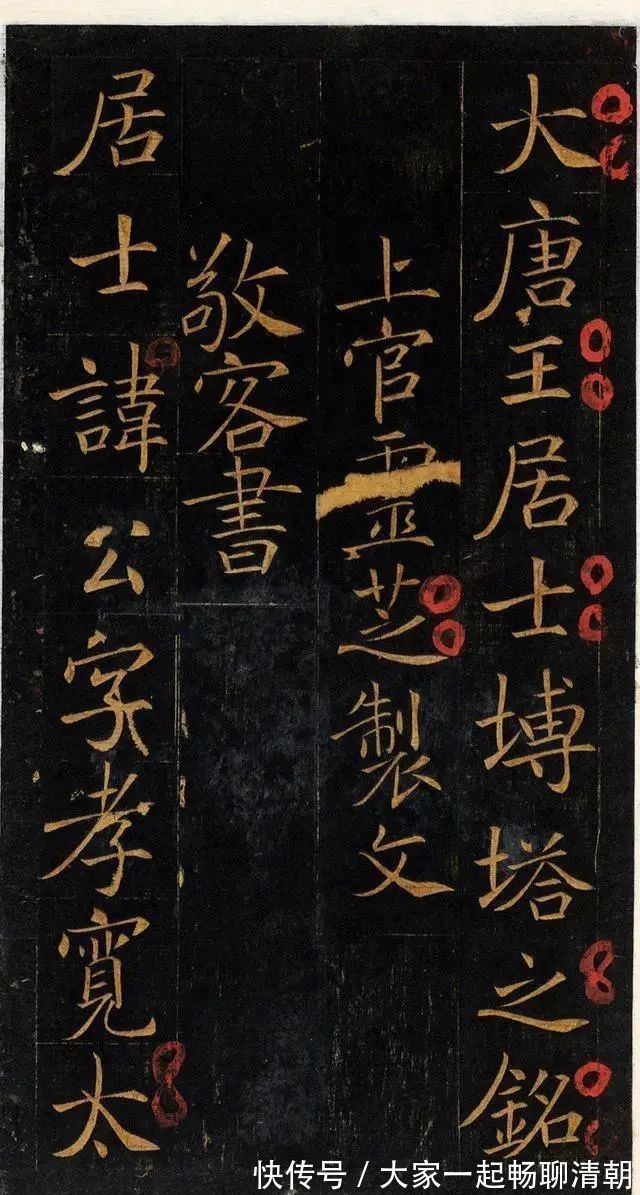 大唐王居士塼塔之銘
上官靈芝製文
敬客書
居士諱公字孝寬太
快传号 / 大家一起畅聊清朝